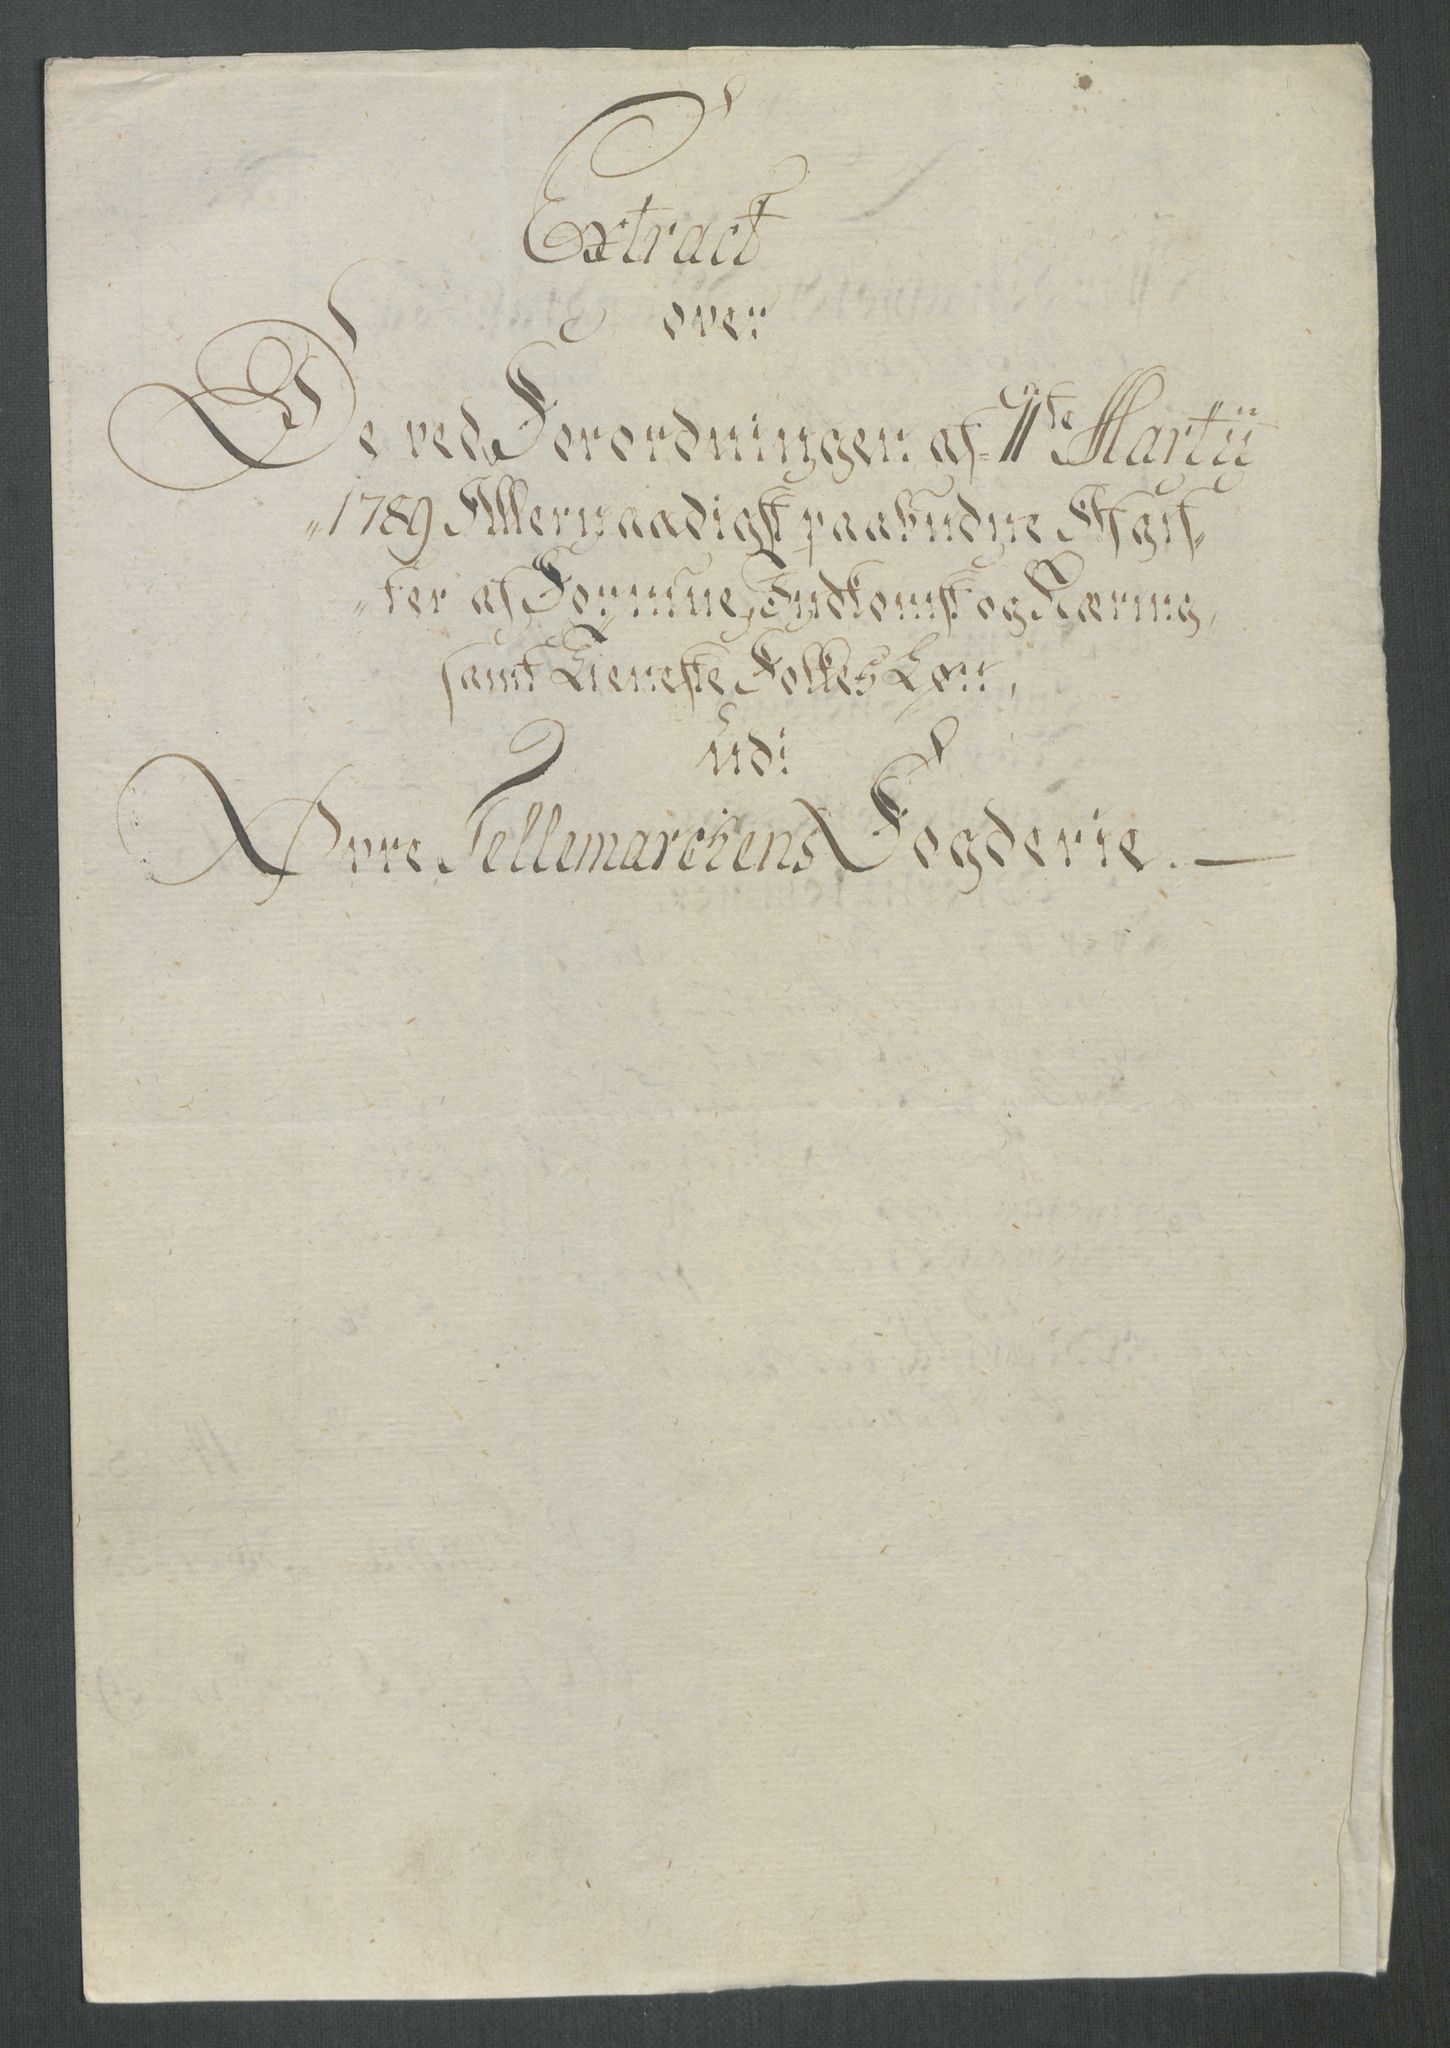 Extract
over
De ved Forordningen af 11te Martii
1789 Allernaadigst paabudne Afgif-
ter af Formue, Indkomst og Næring,
samt Tieneste Folkes Løn,
udi
Øvre Tellemarchens Fogderie.